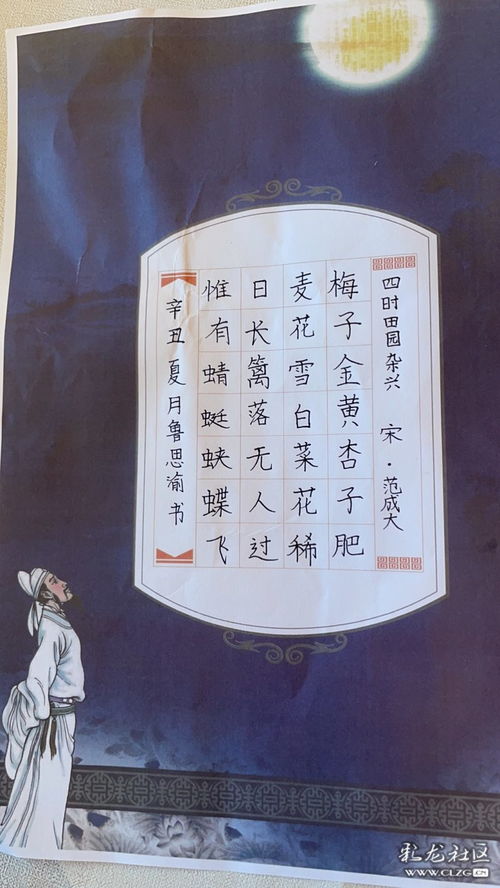 四时田园杂兴 宋·范成大
梅子金黄杏子肥
麦花雪白菜花稀
日长篱落无人过
惟有蜻蜓蛱蝶飞
辛丑夏月鲁思渝书
彩龙社区
WWW.CLZG.CN